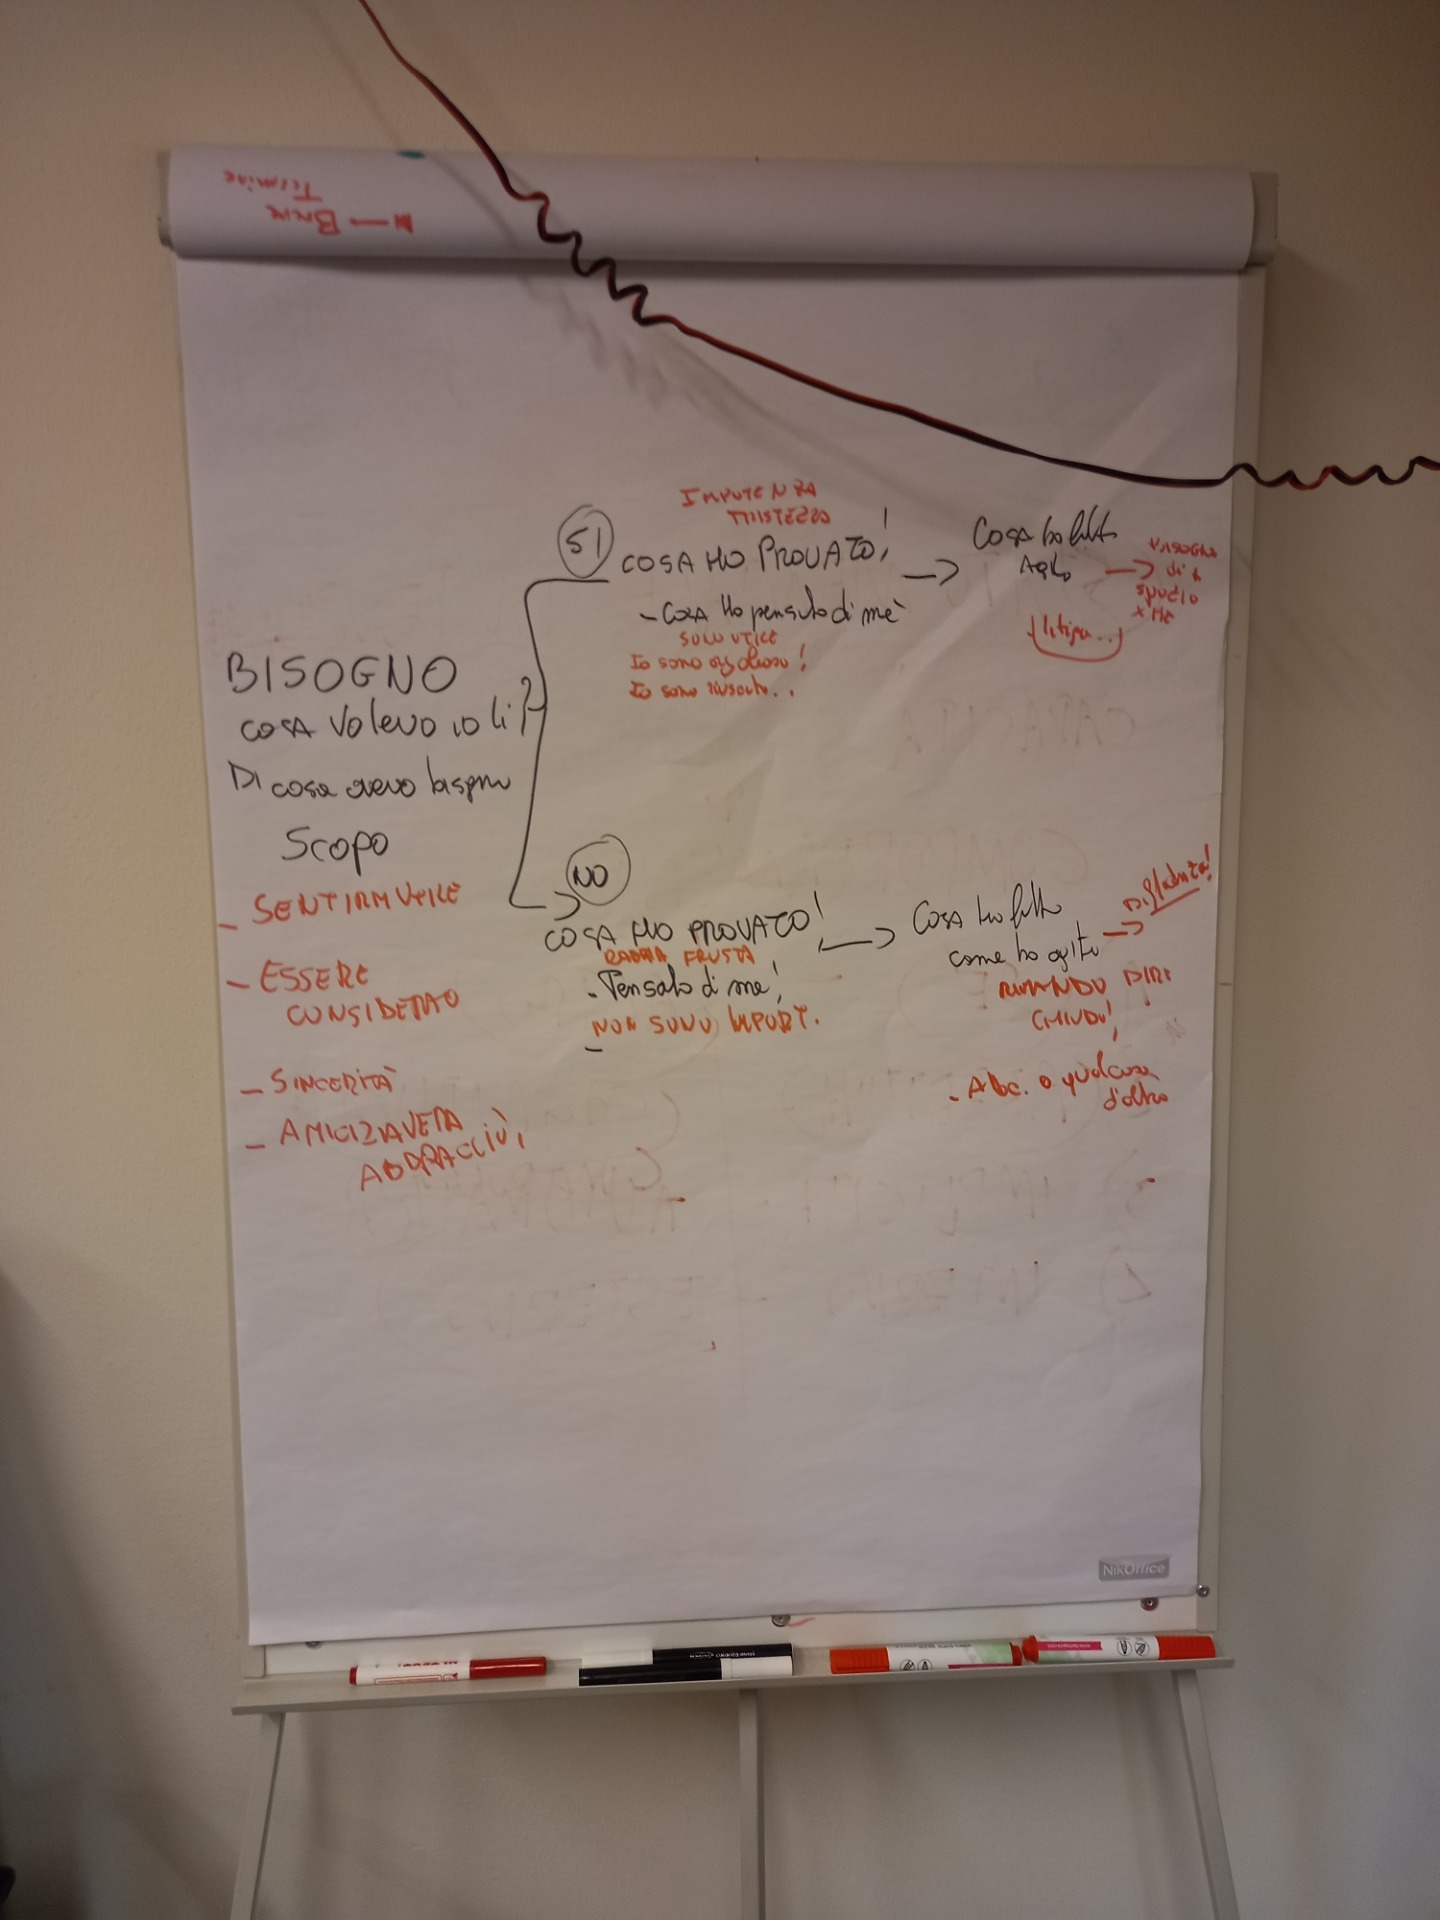 BISOGNO
COSA Volevo io lì?
DI cosa avevo bisogno
Scopo
- SENTIRMI UTILE
- ESSERE
CONSIDERATO
- SINCERITÀ
- AMICIZIA VERA
ABBRACCIÙ,
SI
IMPOTENZA
TRISTEZZA
COSA HO PROVATO!
- COSA Ho pensato di me
SOLO UTILE
Io sono orgolioso!
Io sono riuscito..
Cosa ho fatto
Agito
BISOGNO
di +
x ME
litigu...
NO
COSA HO PROVATO!
RABBIA FRUSTA
- Pensato di me!
NON SONO IMPORT.
Cosa ho fatto
come ho agito
RIMANDO DIRE
CHIUDO!
- Abc. o qualcosa
d'altro
Breve
Termine
NikOffice